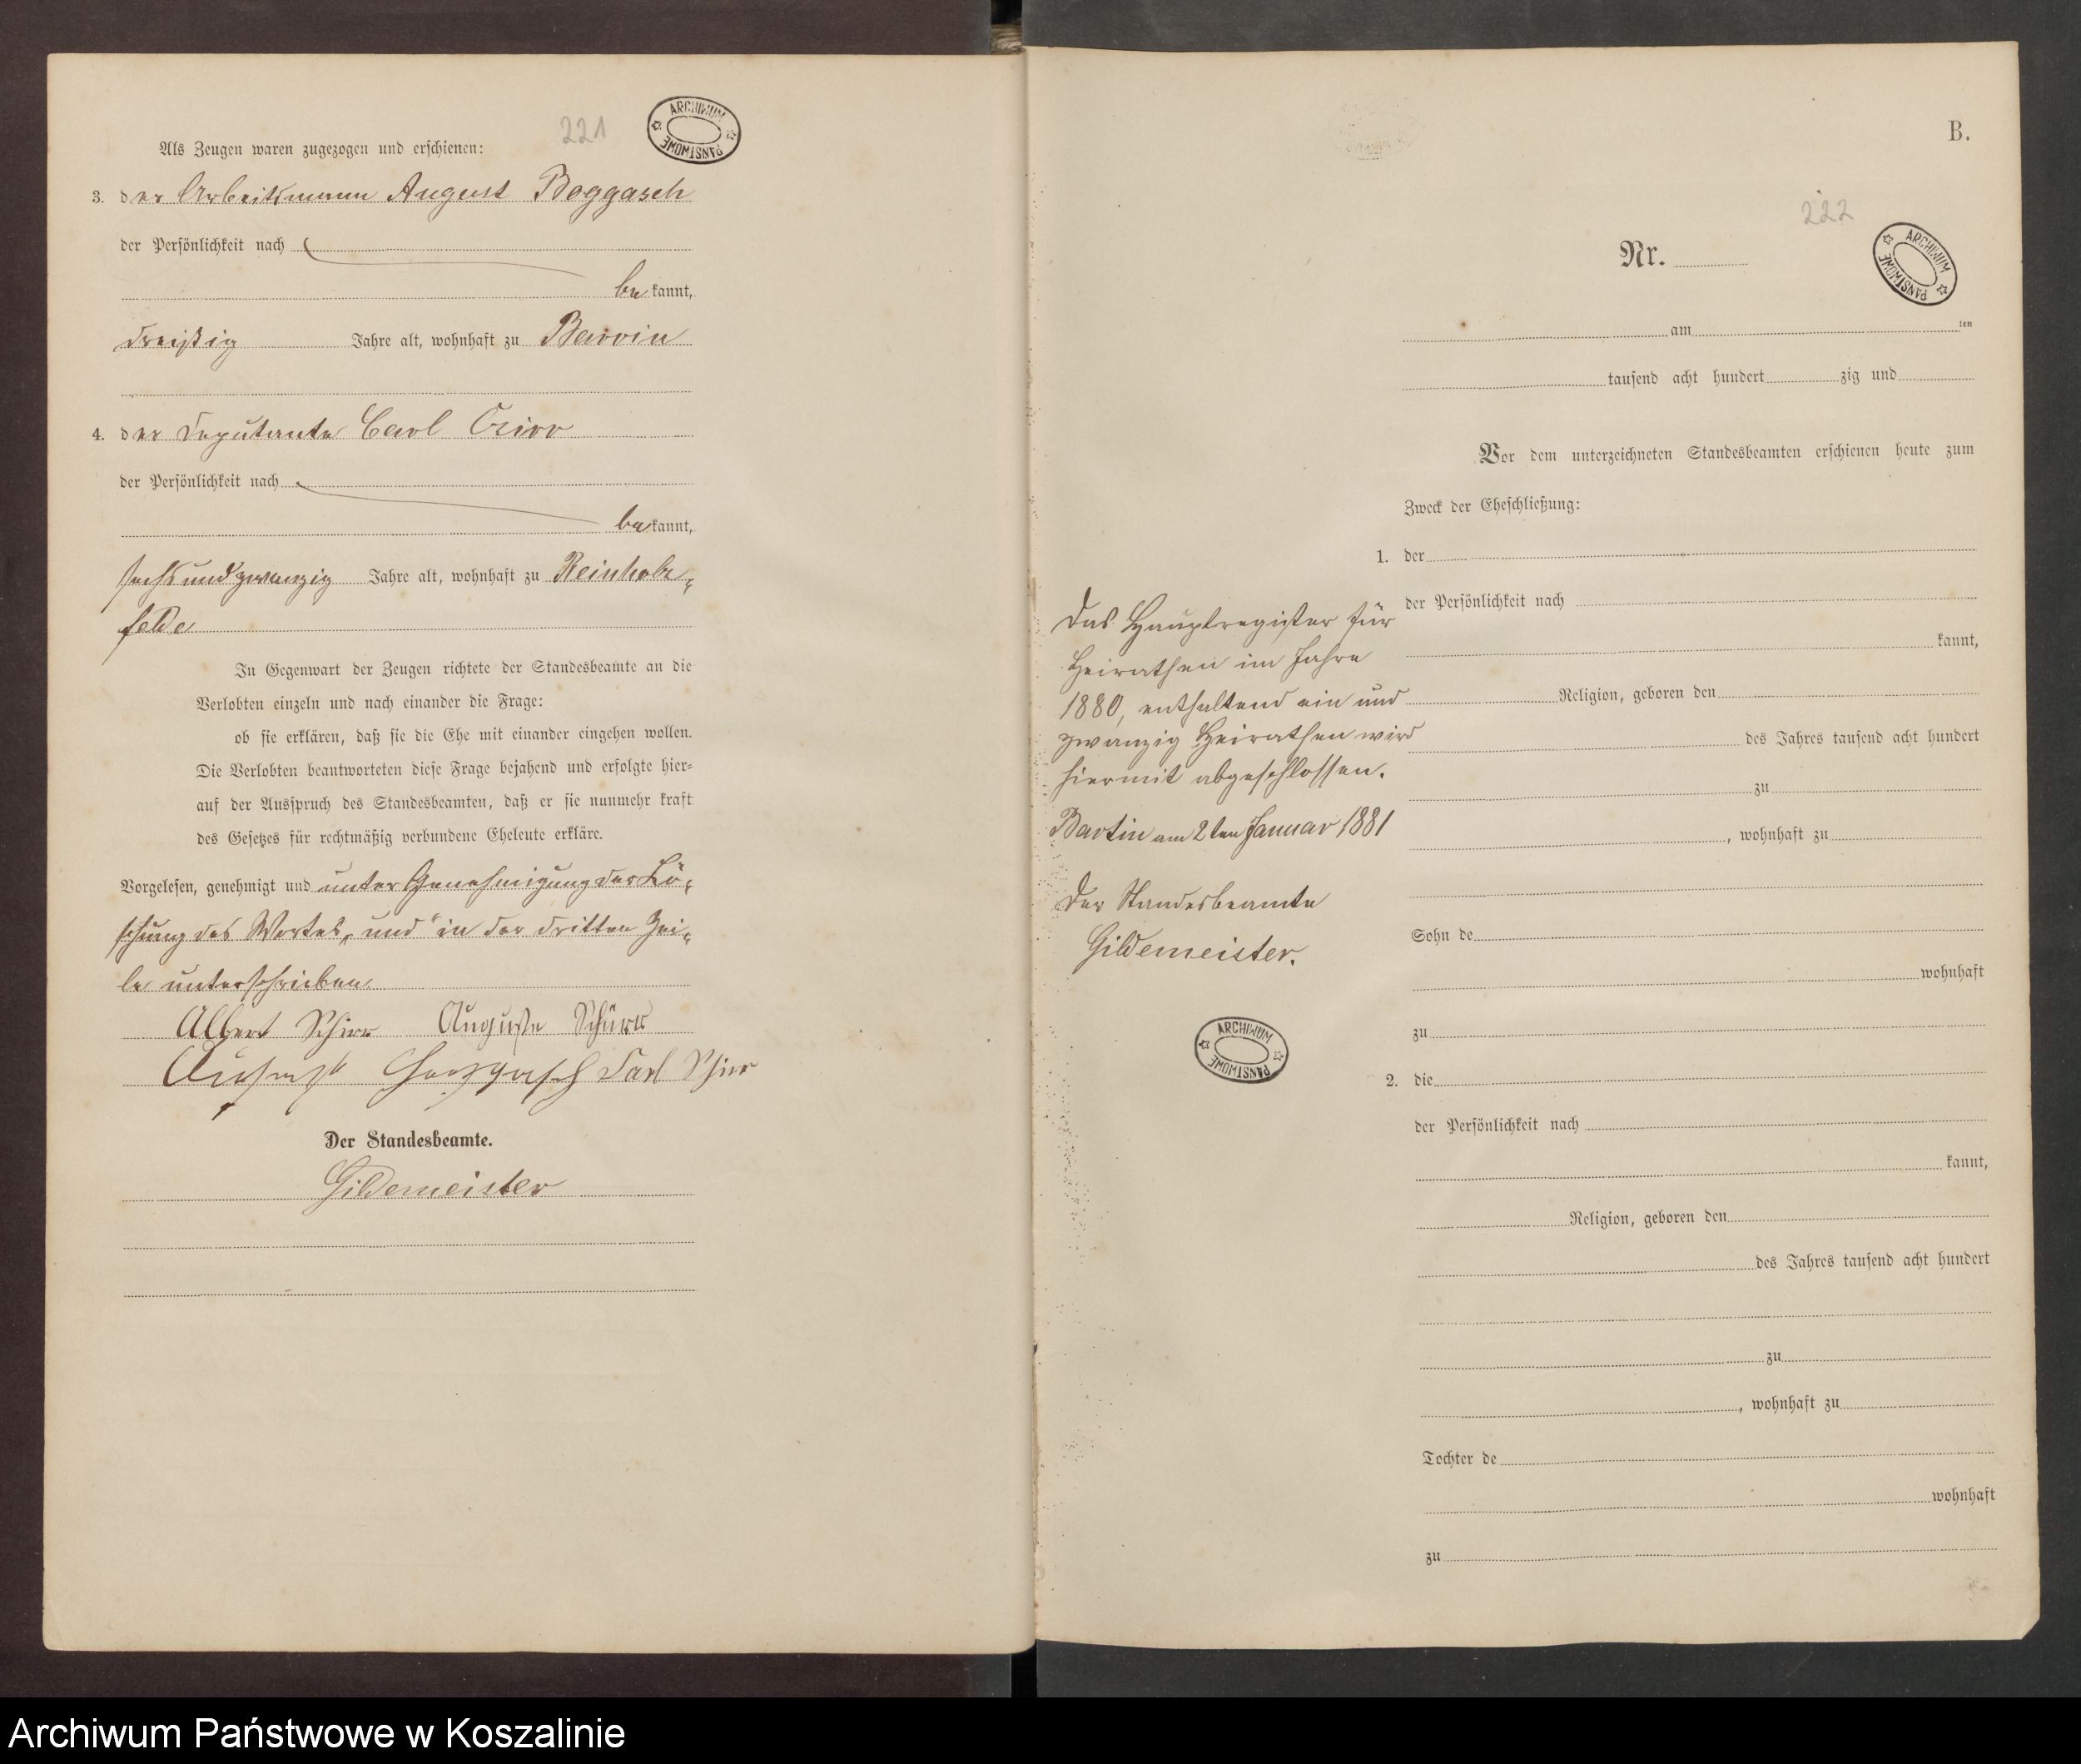 221
ARCHIWUM PAŃSTWOWE
Als Zeugen waren zugezogen und erschienen:
3. der Arbeitsmann August Boggasch
der Persönlichkeit nach
bekannt,
dreißig Jahre alt, wohnhaft zu Barvin
4. der Deputante Carl
der Persönlichkeit nach
bekannt,
sechsundzwanzig Jahre alt, wohnhaft zu Reinholz-
felde
In Gegenwart der Zeugen richtete der Standesbeamte an die
Verlobten einzeln und nach einander die Frage:
ob sie erklären, daß sie die Ehe mit einander eingehen wollen.
Die Verlobten beantworteten diese Frage bejahend und erfolgte hier-
auf der Ausspruch des Standesbeamten, daß er sie nunmehr kraft
des Gesetzes für rechtmäßig verbundene Eheleute erkläre.
Vorgelesen, genehmigt und unter Genehmigung der Lö-
schung des Wortes „und“ in der dritten Zei-
le unterschrieben.
Albert Schirr Auguste Schürr
Carl Schirr
Der Standesbeamte.
Gildemeister
B.
222
ARCHIWUM PAŃSTWOWE
Nr.
am ten
tausend acht hundert zig und
Vor dem unterzeichneten Standesbeamten erschienen heute zum
Zweck der Eheschließung:
1. der
der Persönlichkeit nach
kannt,
Religion, geboren den
des Jahres tausend acht hundert
zu
, wohnhaft zu
Sohn de
wohnhaft
zu
2. die
der Persönlichkeit nach
kannt,
Religion, geboren den
des Jahres tausend acht hundert
zu
, wohnhaft zu
Tochter de
wohnhaft
zu
Das Hauptregister für
Heirathen im Jahre
1880, enthaltend ein und
zwanzig Heirathen wird
hiermit abgeschlossen.
Bartin am 2ten Januar 1881
Der Standesbeamte
Gildemeister.
ARCHIWUM PAŃSTWOWE
Archiwum Państwowe w Koszalinie